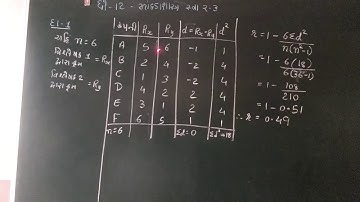 ધો - 12 - આંકડાશાસ્ત્ર સ્વા 2.3
દા-1
અહીં n = 6
નિર્ણાયક 1 = Rx
નિર્ણાયક 2 = Ry
Rx Ry d = Rx - Ry d²
A 5 6 -1 1
B 2 4 -2 4
C 1 3 -2 4
D 4 2 2 4
E 3 1 2 4
F 6 5 1 1
n=6 Σd = 0 Σd² = 18
r = 1 - 6Σd² / n(n²-1)
= 1 - 6(18) / 6(36-1)
= 1 - 108 / 210
= 1 - 0.51
∴ r = 0.49